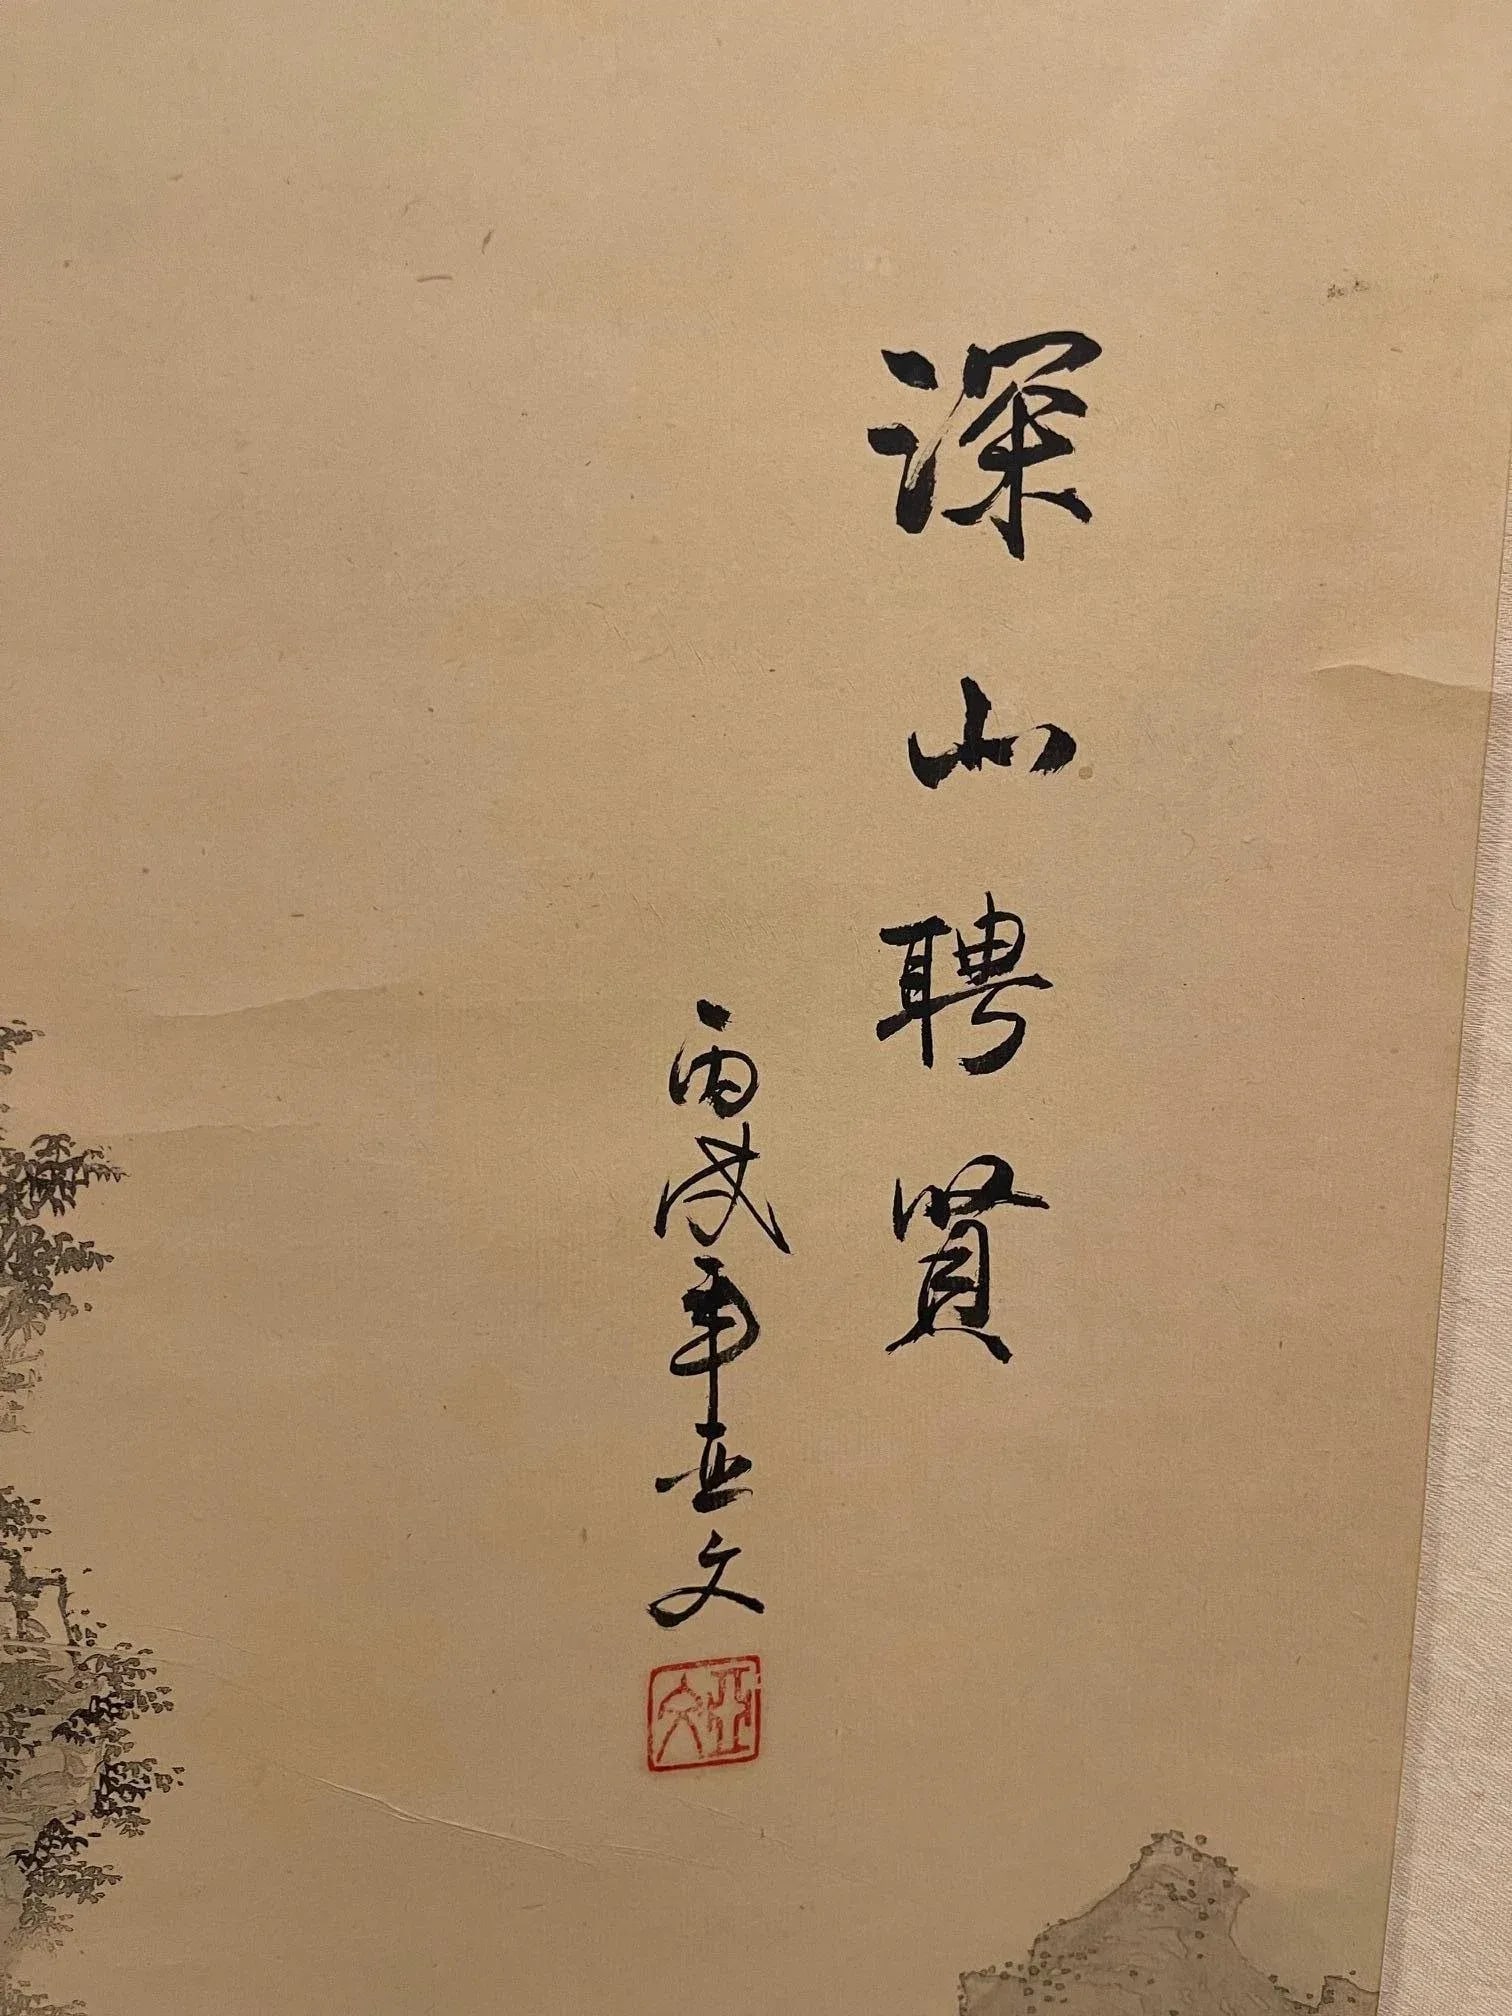 深山聘賢
丙戌年亚文
亞文